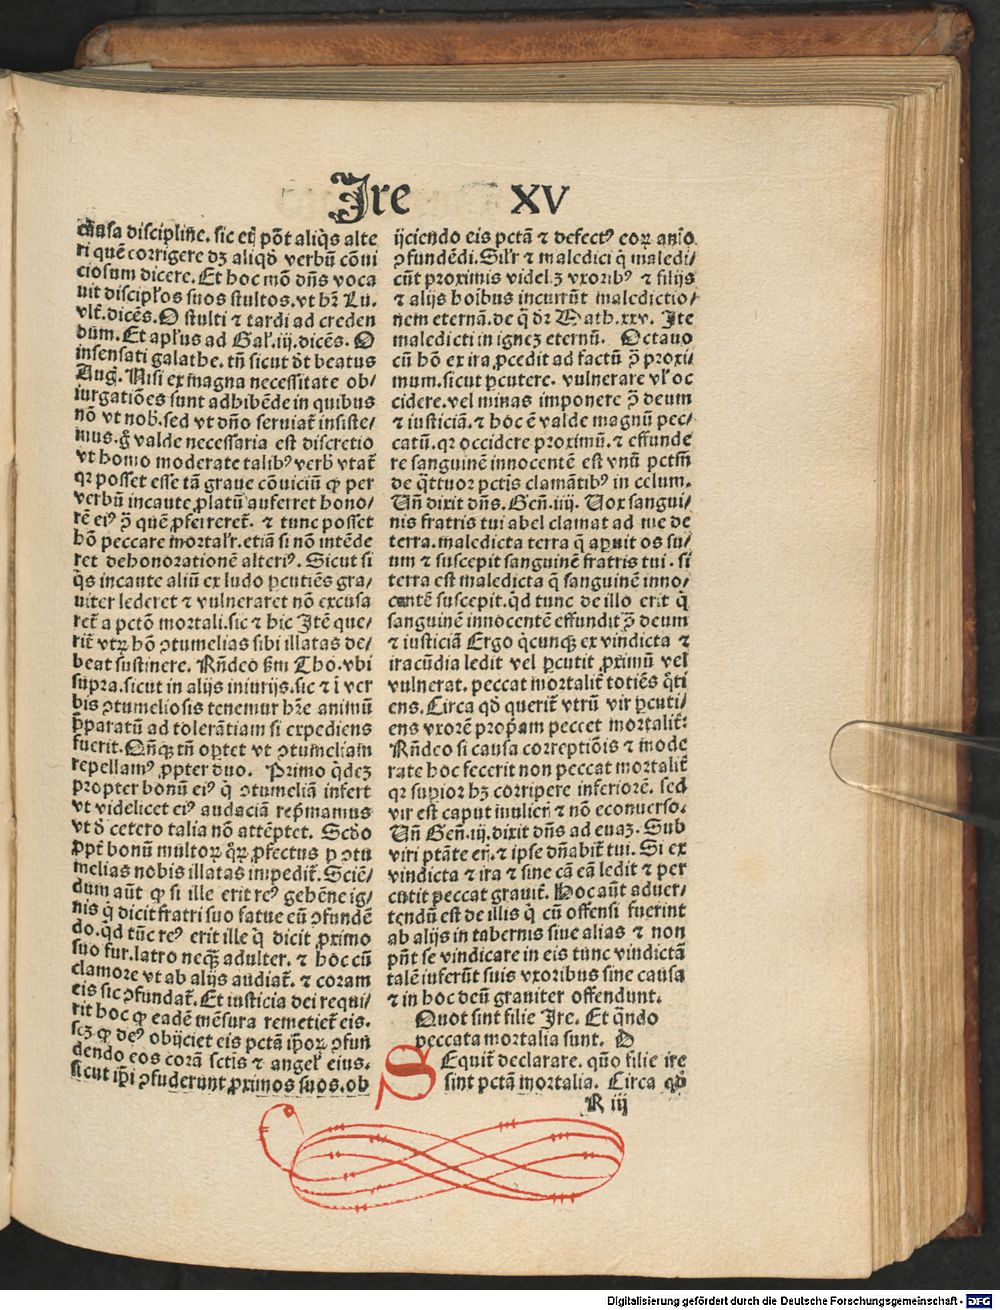 Ire XV
causa discipline. sic etiā pōt aliq̄s alte
ri quē corrigere dꝫ aliqd̄ verbū cōui
ciosum dicere. Et hoc mō dn̄s voca
uit discipl'os suos stultos. vt hr̄ Lu.
vlt̄. dicēs. O stulti ⁊ tardi ad creden
dum. Et apl'us ad Gal'. iij. dicēs. O
insensati galathe. tn̄ sicut dt̄ beatus
Aug̃. Nisi ex magna necessitate ob/
iurgatiōes sunt adhibēde in quibus
nō vt nob̄. sed vt dn̄o seruiat̄ insiste/
mus. g̊ valde necessaria est discretio
vt homo moderate talibꝰ verb̄ vtat̄
qr posset esse tā graue cōuiciū ꝙ per
verbū incaute ꝓlatū auferret hono/
rē eiꝰ ꝯ̄ quē ꝓferreret̄. ⁊ tunc posset
hō peccare mortal'r. etiā si nō intēde
ret dehonorationē alteriꝰ. Sicut si
q̄s incaute aliū ex ludo ꝑcutiēs gra/
uiter lederet ⁊ vulneraret nō excusa
ret̄ a pctō mortali. sic ⁊ hic Itē que/
rit̄ vtꝝ hō ꝯtumelias sibi illatas de/
beat sustinere. Rn̄deo ẜm Tho. vbi
supra. sicut in alijs iniurijs. sic ⁊ ī ver
bis ꝯtumeliosis tenemur hr̄e animū
p̄paratū ad tolerātiam si expediens
fuerit. Qn̄qꝫ tn̄ oꝑtet vt ꝯtumeliam
repellamꝰ ꝓpter duo. Primo q̄dez
propter bonū eiꝰ q̄ ꝯtumeliā infert
vt videlicet eiꝰ audaciā rep̄mamus
vt d̄ cetero talia nō attēptet. Scd̄o
ꝓpt̄ bonū multoꝝ q̄ꝝ ꝓfectus ꝑ ꝯtu
melias nobis illatas impedit̄. Sciē/
dum aūt ꝙ si ille erit reꝰ gehēne ig/
nis q̄ dicit fratri suo fatue eū ꝯfundē
do. q̄d tūc reꝰ erit ille q̄ dicit ꝓximo
suo fur. latro neqꝫ adulter. ⁊ hoc cū
clamore vt ab alijs audiat̄. ⁊ coram
eis sic ꝯfundat̄. Et iusticia dei requi/
rit hoc ꝙ eadē mēsura remetiet̄ eis.
scꝫ ꝙ deꝰ obijciet eis pctā ip̄oꝝ ꝯfun
dendo eos corā sctis ⁊ angel' eius.
sicut ip̄i ꝯfuderunt ꝓximos suos. ob
ijciendo eis pctā ⁊ defectꝰ eoꝝ an̄io
ꝯfundēdi. Sil'r ⁊ maledici q̄ maledi/
cūt proximis videlꝫ vxoribꝰ ⁊ filijs
⁊ alijs hoībus incurrūt maledictio/
nem eternā. de q̄ dr̄ Math. xxv. Ite
maledicti in ignez eternū. Octauo
cū hō ex ira ꝓcedit ad factū ꝯ̄ proxi
mum. sicut ꝑcutere. vulnerare vl' oc
cidere. vel minas imponere ꝯ̄ deum
⁊ iusticiā. ⁊ hoc ē valde magnū pec/
catū. qr occidere proximū. ⁊ effunde
re sanguinē innocentē est vnū pctm̄
de q̄ttuor pctis clamātibꝰ in celum.
Vn̄ dixit dn̄s. Gen̄. iiij. Vox sangui/
nis fratris tui abel clamat ad me de
terra. maledicta terra q̄ aꝑuit os su/
um ⁊ suscepit sanguinē fratris tui. si
terra est maledicta q̄ sanguinē inno/
centē suscepit. q̄d tunc de illo erit q̄
sanguinē innocentē effundit ꝯ̄ deum
⁊ iusticiā Ergo q̄cunqꝫ ex vindicta ⁊
iracūdia ledit vel ꝑcutit ꝓximū vel'
vulnerat. peccat mortalit̄ totiēs q̄ti
ens. Circa qd̄ querit̄ vtrū vir ꝑcuti/
ens vxorē prop̄am peccet mortalit̄:
Rn̄deo si causa correptiōis ⁊ mode
rate hoc fecerit non peccat mortalit̄
qr suꝑior hꝫ corripere inferiorē. sed
vir est caput mulier̄ ⁊ nō econuerso.
Vn̄ Gen̄. iij. dixit dn̄s ad euaꝫ. Sub
viri ptāte er̄. ⁊ ipse dn̄abit̄ tui. Si ex
vindicta ⁊ ira ⁊ sine cā eā ledit ⁊ per
cutit peccat grauit̄. Hoc aūt aduer/
tendū est de illis q̄ cū offensi fuerint
ab alijs in tabernis siue alias ⁊ non
pn̄t se vindicare in eis tunc vindictā
talē inferūt suis vxoribus sine causa
⁊ in hoc deū grauiter offendunt.
Quot sint filie Ire. Et q̄ndo
peccata mortalia sunt. O
SEquit̄ declarare. qn̄o filie ire
sint pctā mortalia. Circa qd̄
R iij
Digitalisierung gefördert durch die Deutsche Forschungsgemeinschaft - DFG